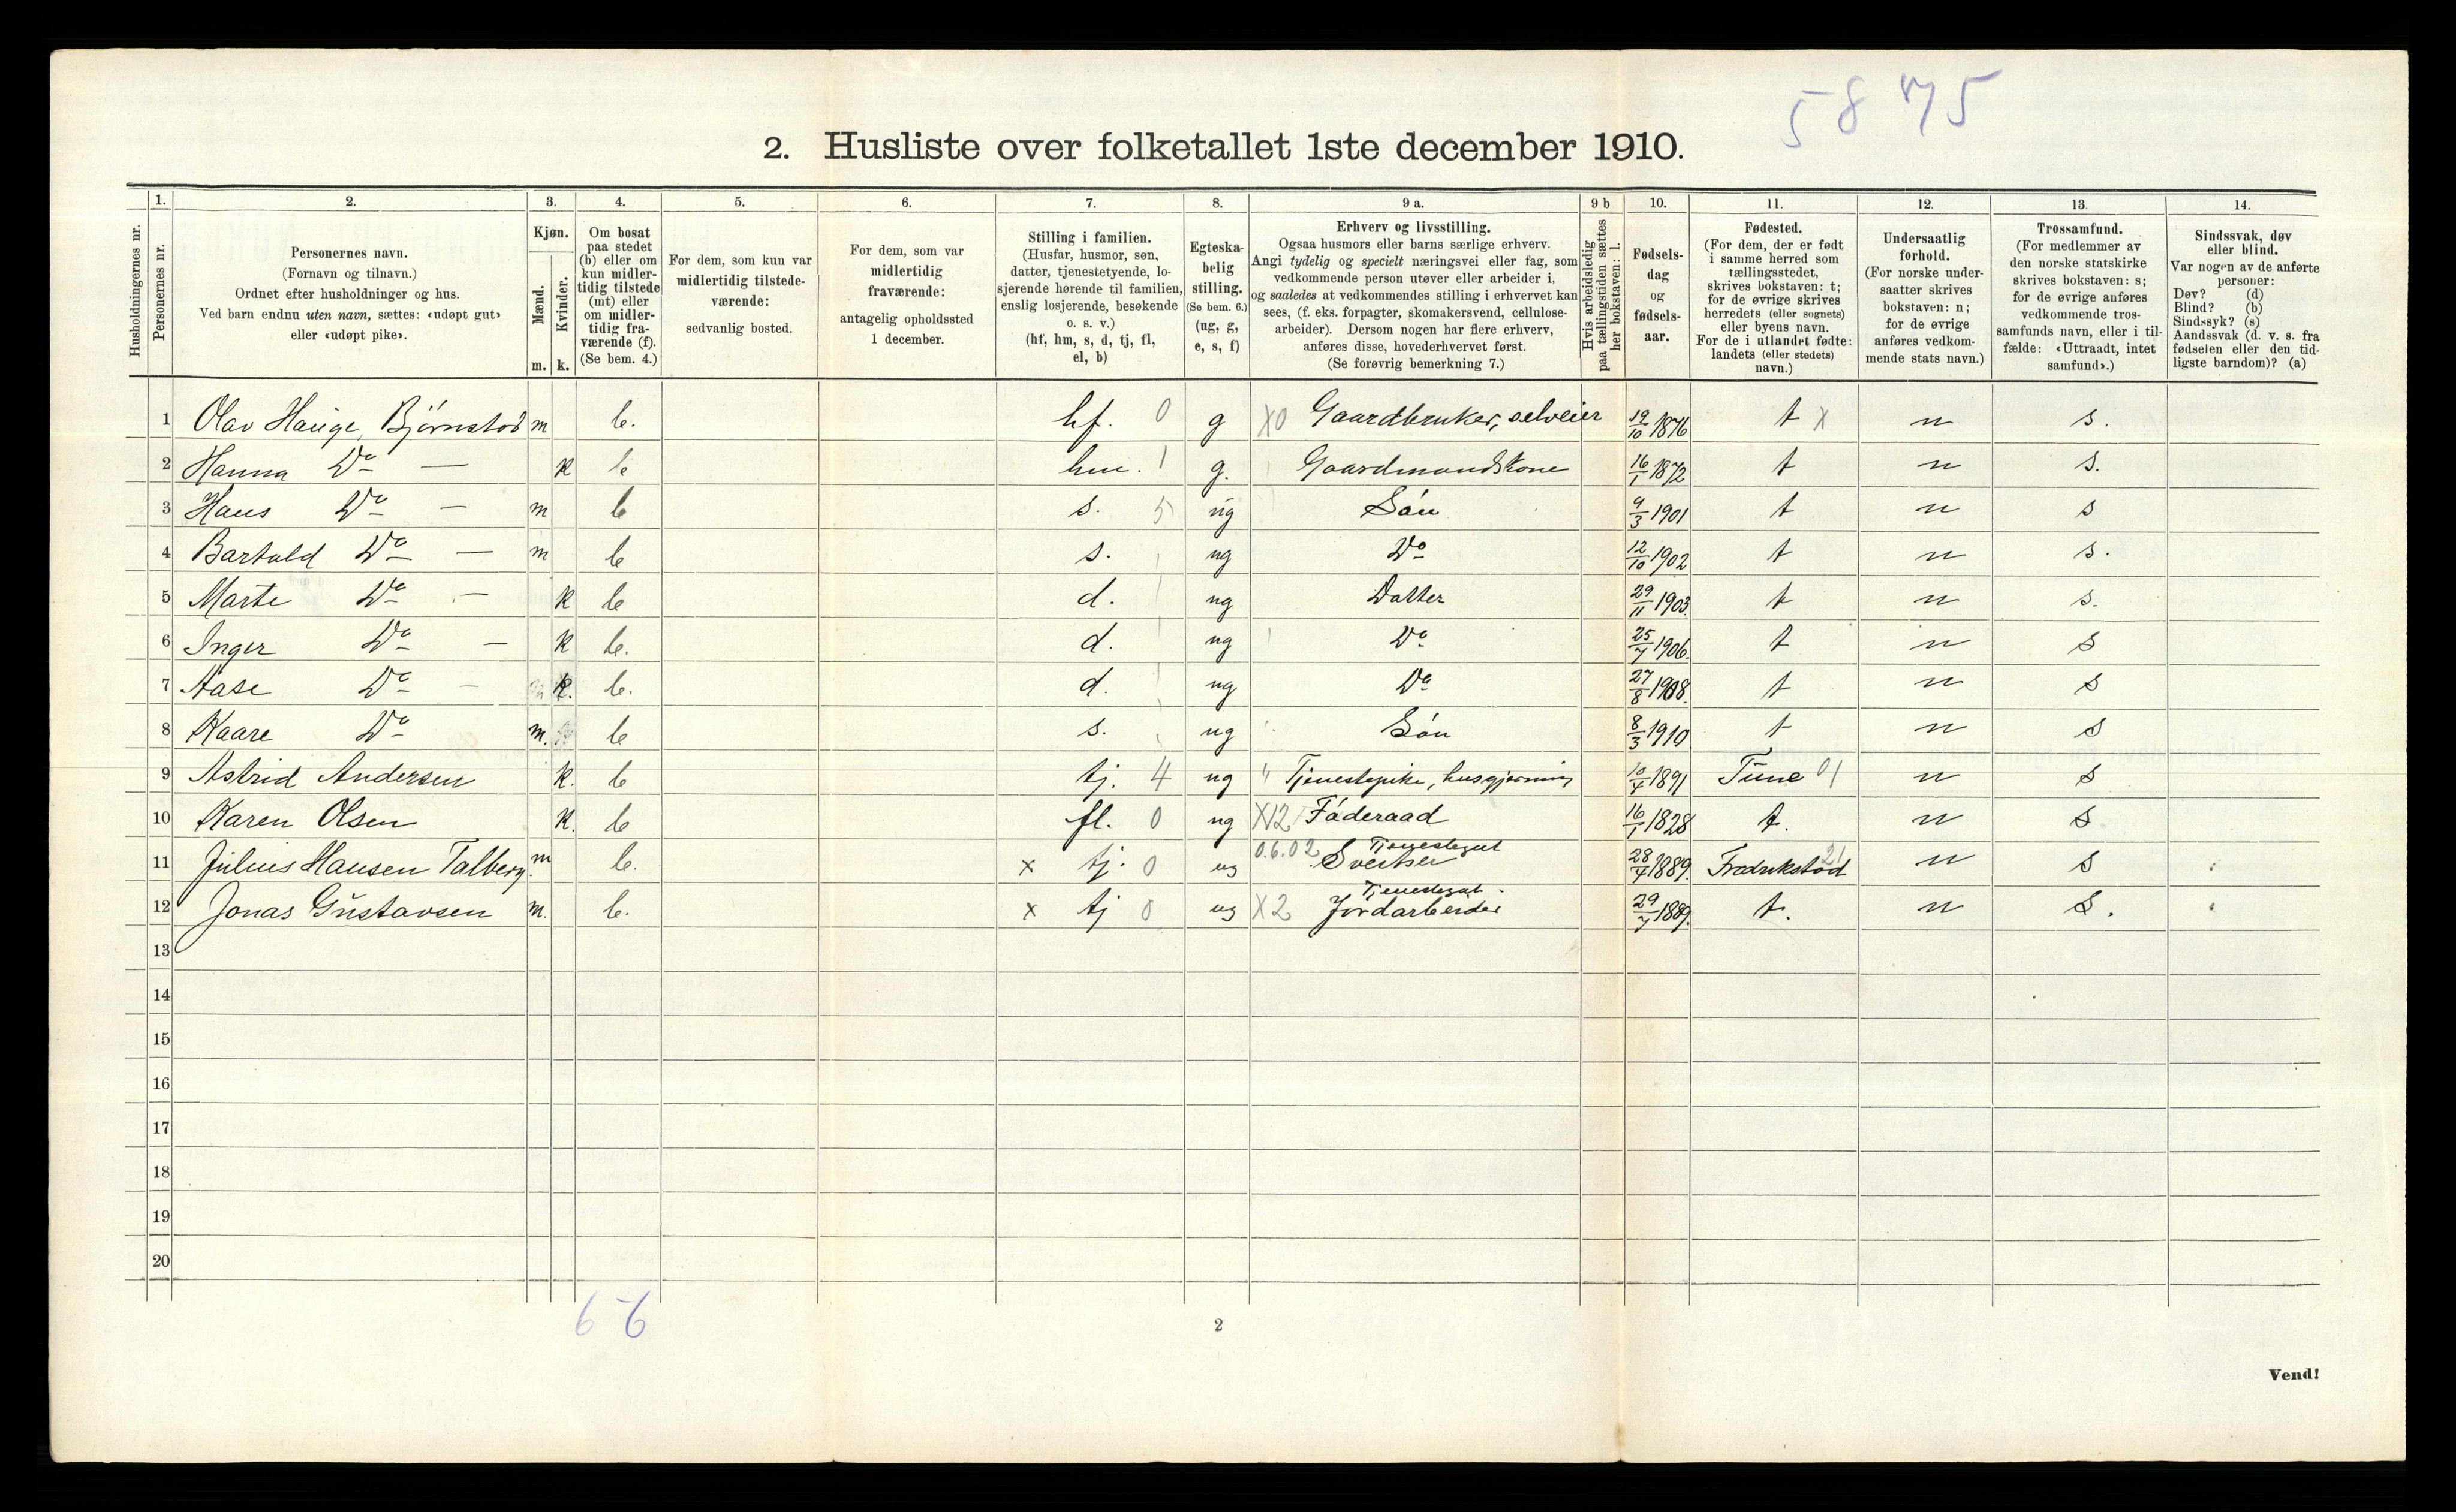 5875
2. Husliste over folketallet 1ste december 1910.
Husholdningernes nr.
1.
Personernes nr.
2.
Personernes navn.
(Fornavn og tilnavn.)
Ordnet efter husholdninger og hus.
Ved barn endnu uten navn, sættes: «udøpt gut»
eller «udøpt pike».
3.
Kjøn.
Mænd.
Kvinder.
m. k.
4.
Om bosat
paa stedet
(b) eller om
kun midler-
tidig tilstede
(mt) eller
om midler-
tidig fra-
værende (f).
(Se bem. 4.)
5.
For dem, som kun var
midlertidig tilstede-
værende:
sedvanlig bosted.
6.
For dem, som var
midlertidig
fraværende:
antagelig opholdssted
1 december.
7.
Stilling i familien.
(Husfar, husmor, søn,
datter, tjenestetyende, lo-
sjerende hørende til familien,
enslig losjerende, besøkende
o. s. v.)
(hf, hm, s, d, tj, fl,
el, b)
8.
Egteska-
belig
stilling.
(Se bem. 6.)
(ug, g,
e, s, f)
9 a.
Erhverv og livsstilling.
Ogsaa husmors eller barns særlige erhverv.
Angi tydelig og specielt næringsvei eller fag, som
vedkommende person utøver eller arbeider i,
og saaledes at vedkommendes stilling i erhvervet kan
sees, (f. eks. forpagter, skomakersvend, cellulose-
arbeider). Dersom nogen har flere erhverv,
anføres disse, hovederhvervet først.
(Se forøvrig bemerkning 7.)
9 b
Hvis arbeidsledig
paa tællingstiden sættes
her bokstaven: l.
10.
Fødsels-
dag
og
fødsels-
aar.
11.
Fødested.
(For dem, der er født
i samme herred som
tællingsstedet,
skrives bokstaven: t;
for de øvrige skrives
herredets (eller sognets)
eller byens navn.
For de i utlandet fødte:
landets (eller stedets)
navn.)
12.
Undersaatlig
forhold.
(For norske under-
saatter skrives
bokstaven: n;
for de øvrige
anføres vedkom-
mende stats navn.)
13.
Trossamfund.
(For medlemmer av
den norske statskirke
skrives bokstaven: s;
for de øvrige anføres
vedkommende tros-
samfunds navn, eller i til-
fælde: «Uttraadt, intet
samfund».)
14.
Sindssvak, døv
eller blind.
Var nogen av de anførte
personer:
Døv? (d)
Blind? (b)
Sindssyk? (s)
Aandssvak (d. v. s. fra
fødselen eller den tid-
ligste barndom)? (a)
1 Olav Hauge Bjørnstad m b. hf. 0 g X0 Gaardbruker, selveier 19/10 1876 t X n s.
2 Hanna Do — k b hm. 1 g. Gaardmandskone 16/1 1872 t n s.
3 Hans Do — m b s. 5 ug Søn 9/3 1901 t n s
4 Bartold Do — m b s. ug Do 12/10 1902 t n s.
5 Marte Do — k b d. ug Datter 29/11 1903. t n s.
6 Inger Do — k b. d. ug Do 25/7 1906. t n s
7 Aase Do — k. b. d. ug Do 27/8 1908. t n s
8 Kaare Do m. b s. ug Søn 8/3 1910 t n s
9 Astrid Andersen k. b tj. 4 ug " Tjenestepike, husgjerning 10/4 1891 Tune 01 n s
10 Karen Olsen k. b fl. 0 ug X12 Føderaad 16/1 1828 t. n s
11 Julius Hansen Talberg. m b. x tj. 0 ug 0.6.02 Tjenestegut Sveitser 28/4 1889. Fredrikstad 21 n s
12 Jonas Gustavsen m. b. x tj 0 ug X2 Tjenestegut. Jordarbeider 29/7 1889. t. n s.
13
14
15
16
17
18
19
20
6 6
2
Vend!